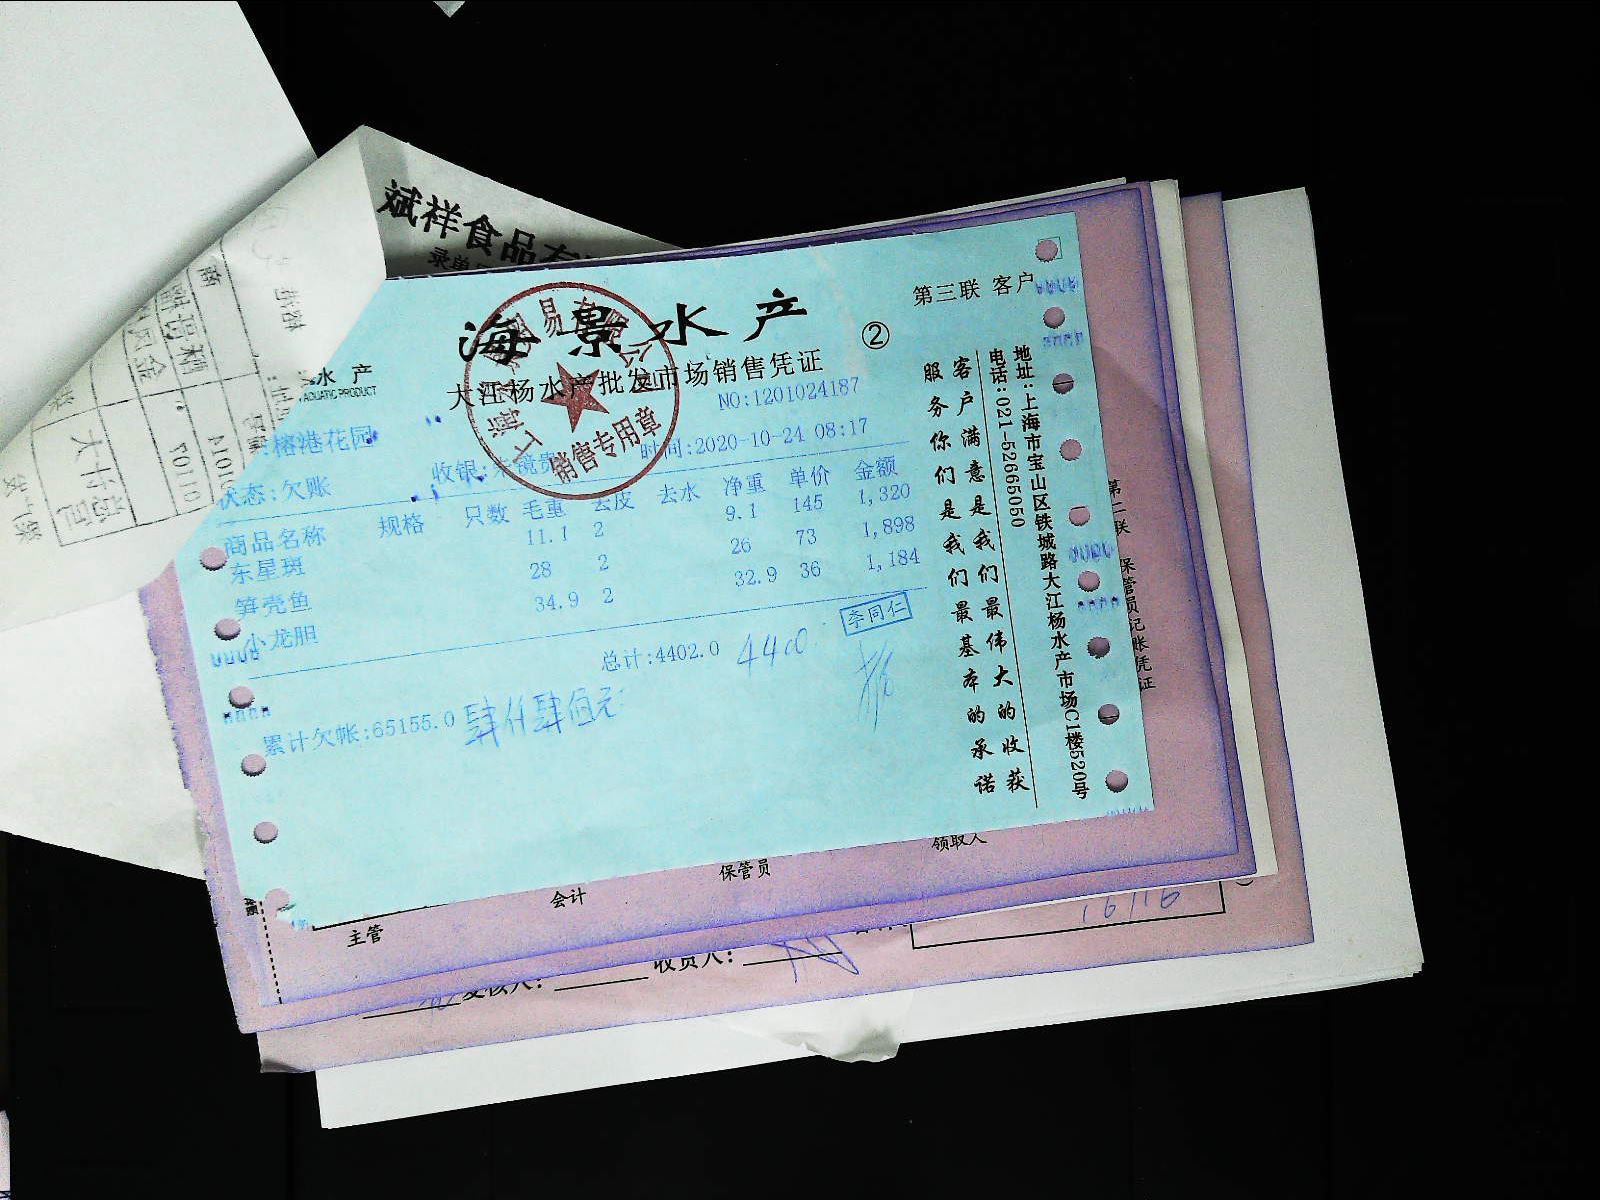 斌祥食品有
海景水产
第三联 客户
②
大江杨水产批发市场销售凭证
水 产
AQUATIC PRODUCT
NO:1201024187
:榕港花园
收银:
时间:2020-10-24 08:17
状态:欠账
销售专用章
商品名称 规格 只数 毛重 去皮 去水 净重 单价 金额
东星斑 11.1 2 9.1 145 1,320
笋壳鱼 28 2 26 73 1,898
小龙胆 34.9 2 32.9 36 1,184
总计:4402.0 4400
李同仁
累计欠帐:65155.0 肆仟肆佰元
客户满意是我们最伟大的收获
服务你们是我们最基本的承诺
地址:上海市宝山区铁城路大江杨水产市场C1楼520号
电话:021-52665050
第二联 保管员记账凭证
主管
会计
保管员
领取人
复核人:
收货人:
16116